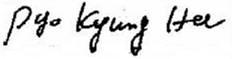 Pyo Kyung Hee